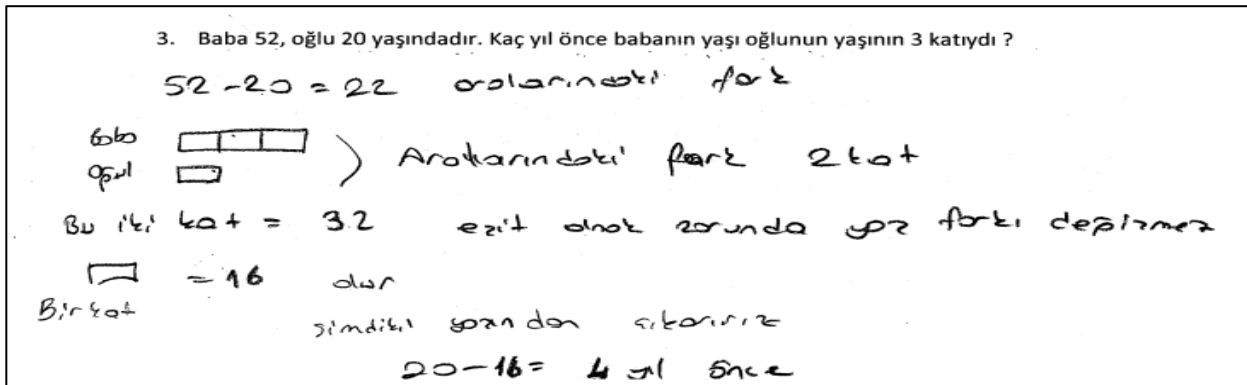 3. Baba 52, oğlu 20 yaşındadır. Kaç yıl önce babanın yaşı oğlunun yaşının 3 katıydı ?
52 - 20 = 22 aralarındaki fark
baba
oğul
Aralarındaki fark 2 kat
Bu iki kat = 32 eşit olmak zorunda yaş farkı değişmez
= 16 dır
Bir kat
şimdiki yaşından çıkarırız
20 - 16 = 4 yıl önce